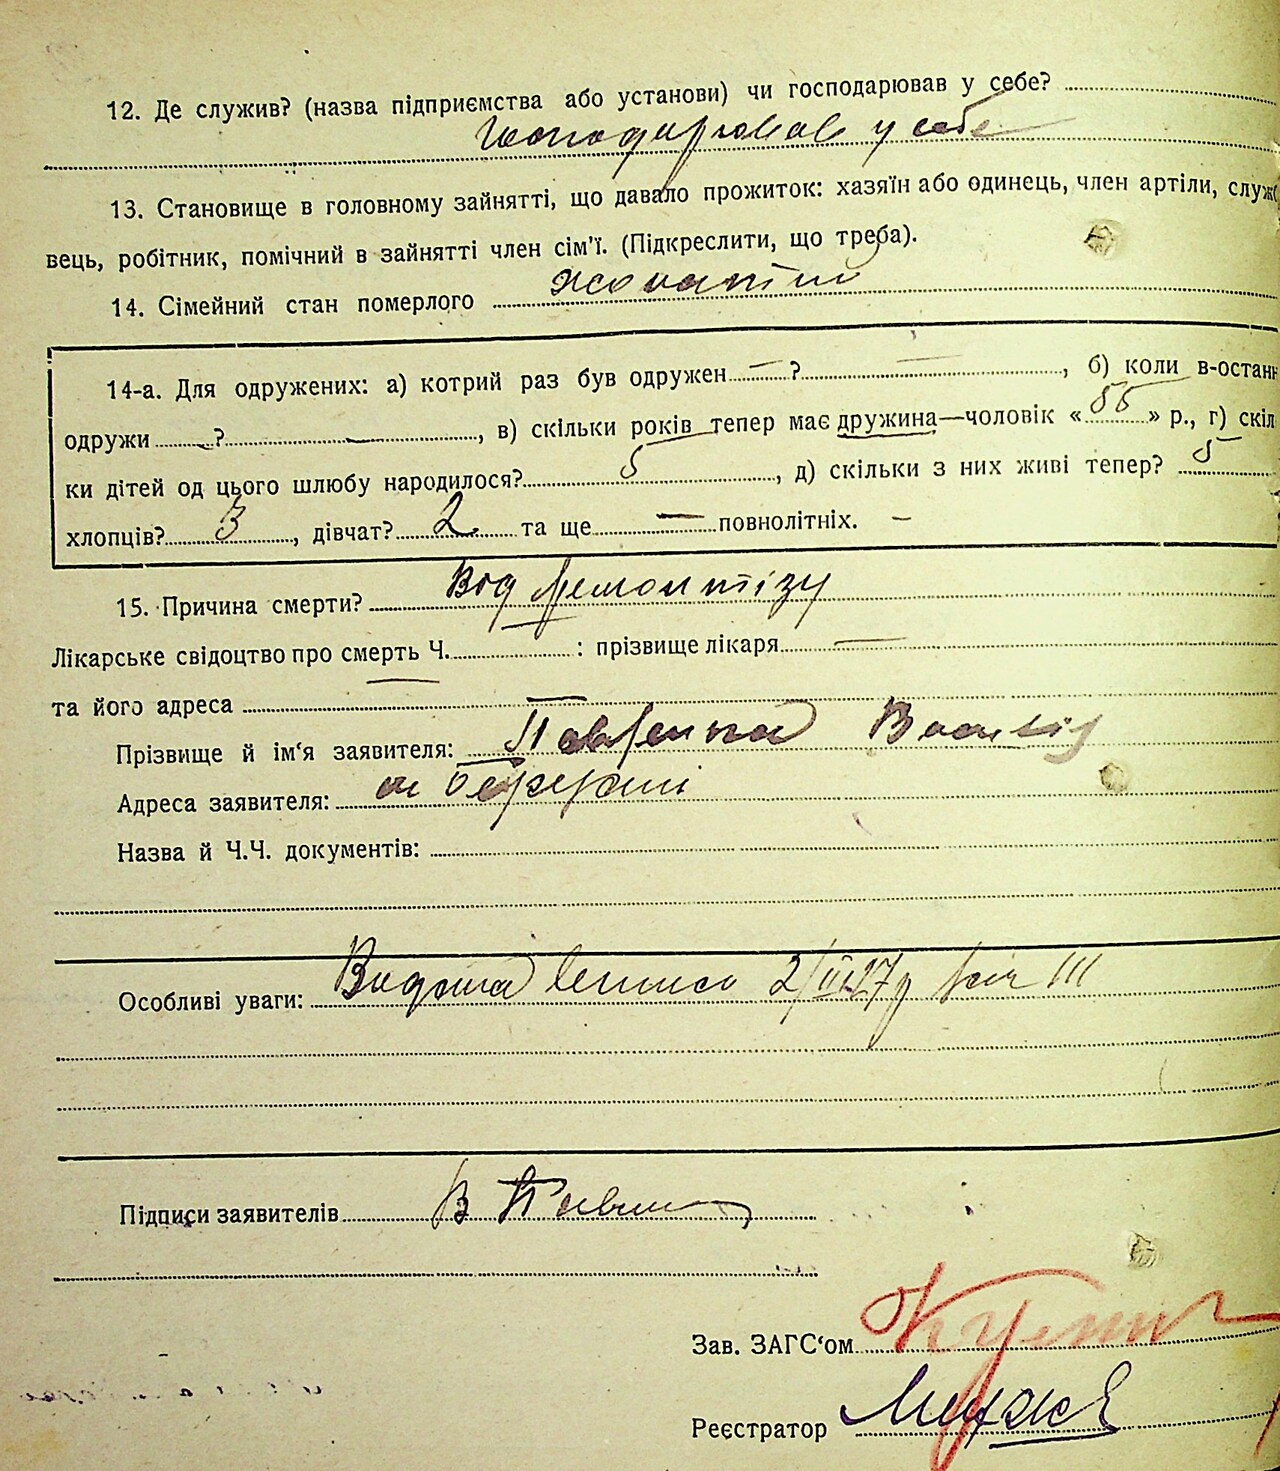 12. Де служив? (назва підприємства або установи) чи господарював у себе?
господарював у себе
13. Становище в головному зайнятті, що давало прожиток: хазяїн або одинець, член артіли, служ
вець, робітник, помічний в зайнятті член сім'ї. (Підкреслити, що треба).
14. Сімейний стан померлого жонатий
14-а. Для одружених: а) котрий раз був одружен — ? —, б) коли в-остан
одружи — ? —, в) скільки років тепер має дружина—чоловік « 55 » р., г) скіл
ки дітей од цього шлюбу народилося? 5, д) скільки з них живі тепер? 5
хлопців? 3, дівчат? 2 та ще — повнолітніх. —
15. Причина смерти? Від
Лікарське свідоцтво про смерть Ч. — : прізвище лікаря —
та його адреса —
Прізвище й ім'я заявителя: Василь
Адреса заявителя:
Назва й Ч.Ч. документів:
Особливі уваги: Видана 27 р III
Підписи заявителів В
Зав. ЗАГС'ом
Реєстратор